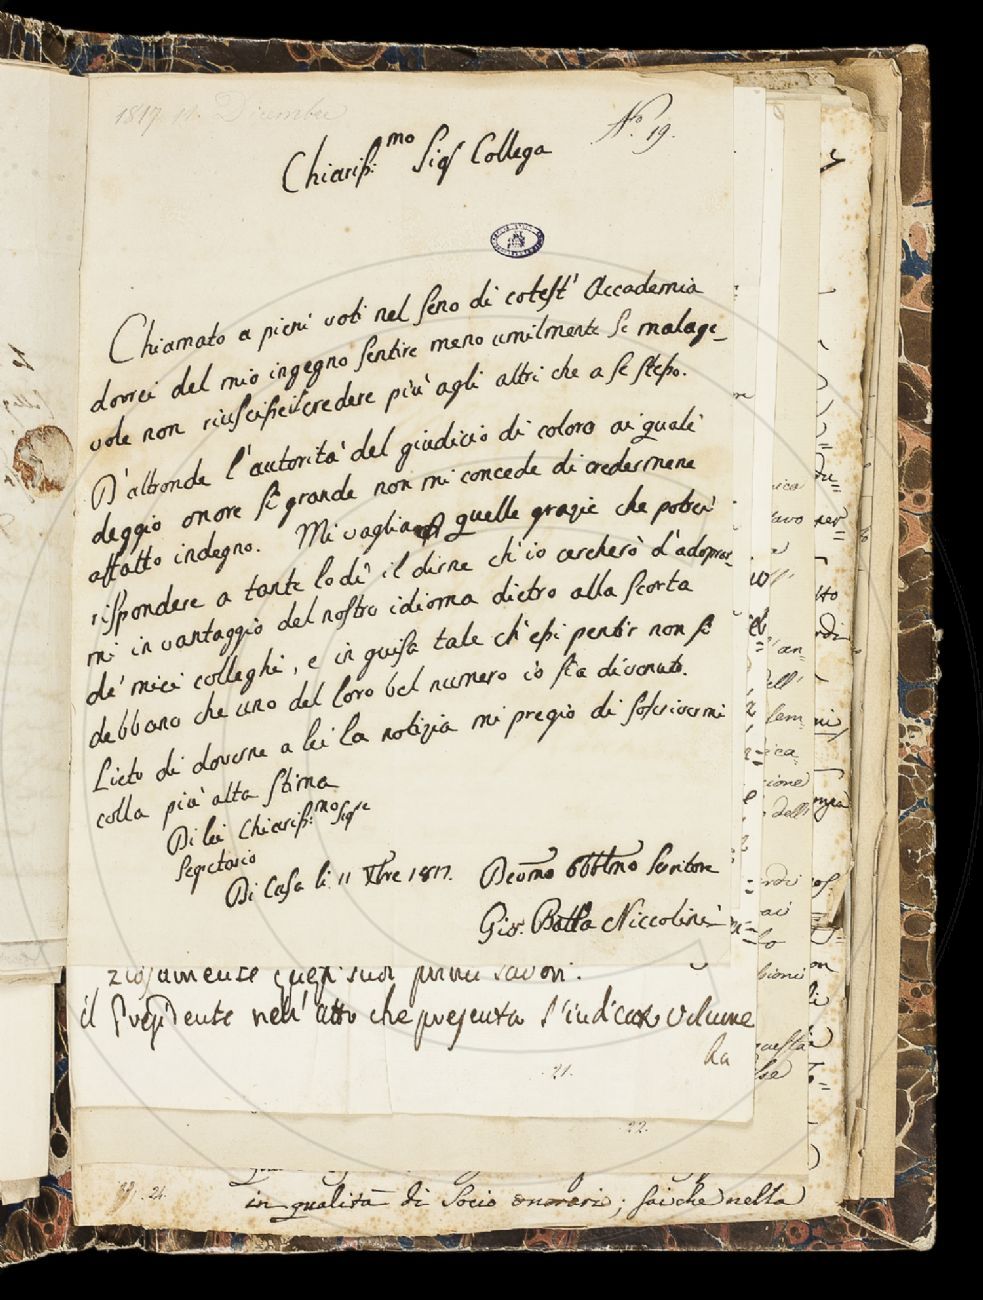 1817. 11. Dicembre
N.º 19.
Chiariss.mo Sigr Collega
Chiamato a pieni voti nel seno di cotest' Accademia
dovrei del mio ingegno sentire meno umilmente se malage-
vole non riuscisse il credere più agli altri che a se stesso.
D'altronde l'autorità del giudicio di coloro ai quali
deggio onore sì grande non mi concede di credermene
affatto indegno. Mi vagliano quelle grazie che potrei
rispondere a tante lodi il dirne ch'io cercherò d'adoprar-
mi in vantaggio del nostro idioma dietro alla scorta
de' miei colleghi, e in guisa tale ch'essi pentir non si
debbano che uno del loro bel numero io sia divenuto.
Lieto di doverne a lei la notizia mi pregio di soscrivermi
colla più alta stima
Di lei Chiariss.mo Sigre
Segretario
Di Casa li 11 Xbre 1817. Devmo Obbmo Servitore
Gio. Batta Niccolini
il Presidente nell'atto che presenta l'indicato volume
ha
21.
22.
in qualità di Socio onorario; saiche nella